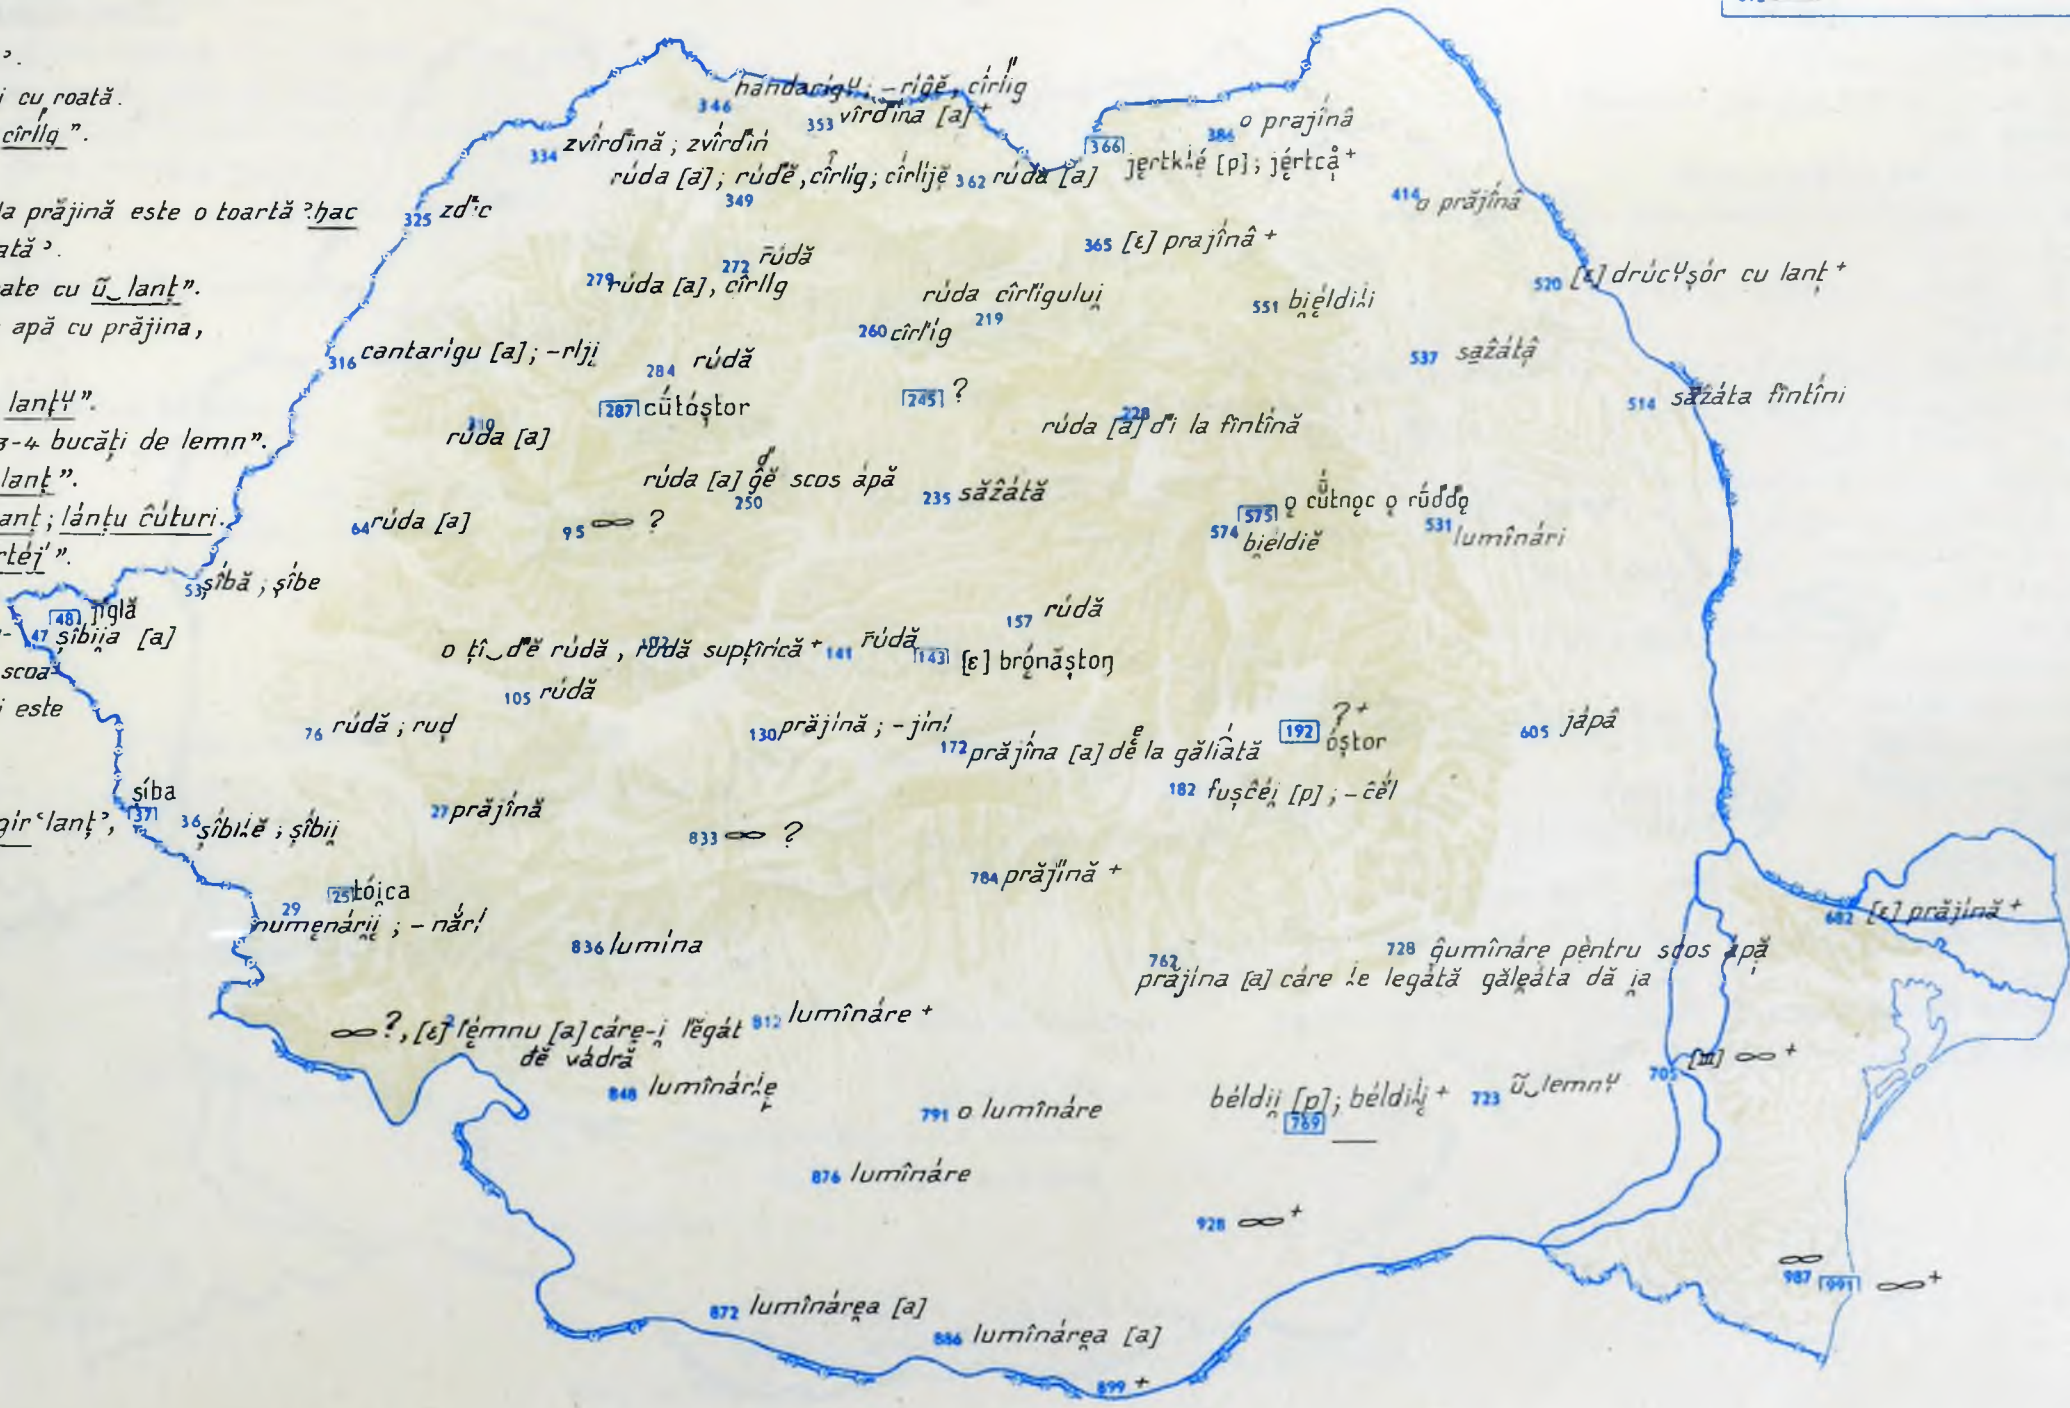 i cu roată.
cîrlig”.
la prăjină este o toartă ʾhac
ată ʾ.
ate cu ũ‿lanț”.
apă cu prăjina,
lanțᶙ”.
3-4 bucăți de lemn”.
lanț”.
anț; lánțu ĉúturi.
rtéj”.
scoa-
i este
gir ʿlanțʾ,
346 handarígᶙ; -ríĝĕ, cîrlig
353 vîrďina [a]+
334 zvîrďină; zvîrďiń
rúda [a]; rúďĕ, cîrlig; cîrlijĕ
349
362 rúda [a]
366 jertkĭé [p]; jértcå+
386 o prajínâ
414 o prăjínâ
325
365 [ε] prajínâ+
272 r̄údă
279 rúda [a], cîrlig
rúda cîrľigului
219
260 cîrľíg
551 bieldiĭi
520 [ε] drúcᶙșór cu lanț+
316 cantarígu [a]; -rĭji
284 rúdă
537 sažátâ
287 cǘtóștor
245 ?
514 sažáta fîntîni
310
rúda [a]
228
rúda [a] ďi la fîntînă
rúda [a] ĝĕ scos ápă
250
235 săžátă
64 rúda [a]
95 ∞ ?
575 o cǘtnoc o rúddo
574 bieldiĕ
531 lumînári
53 șîbă; șîbe
48 jiglă
47 șîbiia [a]
157 rúdă
102
o țî‿ďĕ rúdă, rúdă supțírică+
141 r̄údă
143 [ε] brónăștoŋ
105 rúdă
76 rúdă; ruḑ
130 prăjínă; -jiní
172 prăjína [a] dĕ la găliátă
192 ?+
óștor
605 jápâ
182 fușĉéi [p]; -ĉél
șíba
37
36 șîbiĭĕ; șîbii
27 prăjínă
833 ∞ ?
784 prăjínă+
25 tóica
29
numenárii; -nắrí
836 lumína
682 [ε] prăjínă+
728 ĝumînáre péntru scos apă
762
prăjína [a] cáre ĭe legátă găleáta dă ia
2
∞ ?, [ε] ľémnu [a] cáre-i ľĕgát
dĕ vádră
812 lumînáre+
705 [m] ∞+
848 lumînárĭe
791 o lumînáre
béldii [p]; béldiĭi+
769
723 ũ‿lemnᶙ
876 lumînáre
928 ∞+
∞
987
991 ∞+
872 lumînárea [a]
886 lumînárea [a]
899 +